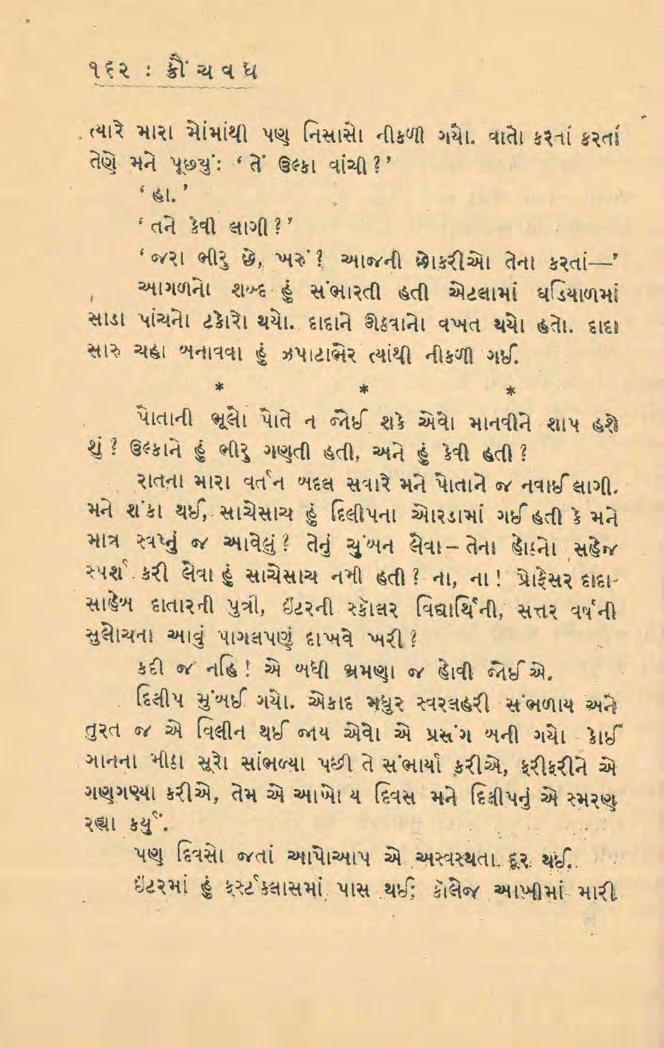 ૧૬૨ : ક્રૌંચવધ
ત્યારે મારા મોંમાંથી પણ નિસાસો નીકળી ગયો. વાતો કરતાં કરતાં
તેણે મને પૂછ્યું: ‘ તેં ઉલ્કા વાંચી ? ’
‘ હા. ’
‘ તને કેવી લાગી ? ’
‘ જરા ભીરુ છે, ખરું ? આજની છોકરીઓ તેના કરતાં—’
આગળનો શબ્દ હું સંભારતી હતી એટલામાં ઘડિયાળમાં
સાડા પાંચનો ટકોરો થયો. દાદાને ઊઠવાનો વખત થયો હતો. દાદા
સારુ ચહા બનાવવા હું ઝપાટાભેર ત્યાંથી નીકળી ગઈ.
* * *
પોતાની ભૂલો પોતે ન જોઈ શકે એવો માનવીને શાપ હશે
શું ? ઉલ્કાને હું ભીરુ ગણતી હતી, અને હું કેવી હતી ?
રાતના મારા વર્તન બદલ સવારે મને પોતાને જ નવાઈ લાગી.
મને શંકા થઈ, સાચેસાચ હું દિલીપના ઓરડામાં ગઈ હતી કે મને
માત્ર સ્વપ્નું જ આવેલું ? તેનું ચુંબન લેવા – તેના હોઠનો સહેજ
સ્પર્શ કરી લેવા હું સાચેસાચ નમી હતી ? ના, ના ! પ્રોફેસર દાદા-
સાહેબ દાતારની પુત્રી, ઇંટરની સ્કૉલર વિદ્યાર્થિની, સત્તર વર્ષની
સુલોચના આવું પાગલપણું દાખવે ખરી ?
કદી જ નહિ ! એ બધી ભ્રમણા જ હોવી જોઈએ.
દિલીપ મુંબઈ ગયો. એકાદ મધુર સ્વરલહરી સંભળાય અને
તુરત જ એ વિલીન થઈ જાય એવો એ પ્રસંગ બની ગયો કોઈ
ગાનના મીઠા સૂરો સાંભળ્યા પછી તે સંભાર્યા કરીએ, ફરીફરીને એ
ગણગણ્યા કરીએ, તેમ એ આખો ય દિવસ મને દિલીપનું એ સ્મરણ
રહ્યા કર્યું.
પણ દિવસો જતાં આપોઆપ એ અસ્વસ્થતા દૂર થઈ.
ઇંટરમાં હું ફર્સ્ટક્લાસમાં પાસ થઈ; કૉલેજ આખીમાં મારી